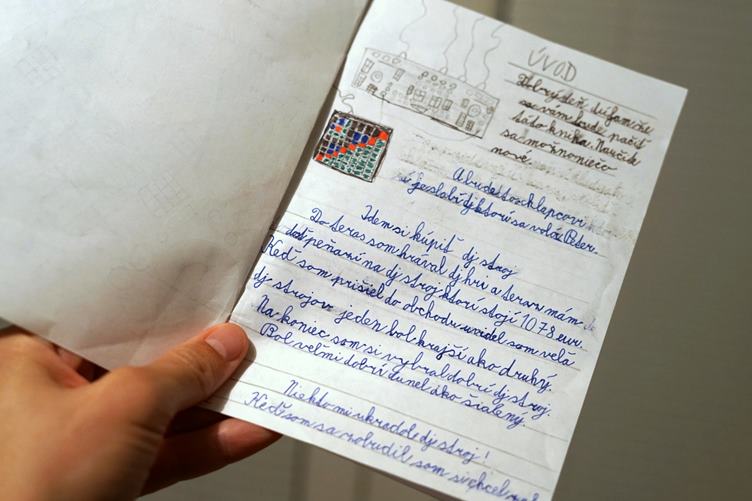 ÚVOD
Dobrý deň, dúfam, že
sa vám bude páčiť
táto kniha. Naučíte
sa možno niečo
nové
A bude to o chlapcovi
i je slabí dj ktorí sa volá Peter.
Idem si kúpiť dj stroj
Do teras som hrával dj hri a teraz mám
dosť peňazí na dj stroj ktorí stojí 1078 eur.
Keď som prišiel do obchodu uvidel som veľa
dj strojov jeden bol krajší ako druhý.
Na koniec som si vybral dobrí dj stroj.
Bol veľmi dobrí dunel ako šialený.
Niekto mi ukradol dj stroj!
Keď som sa zobudil som si chcel